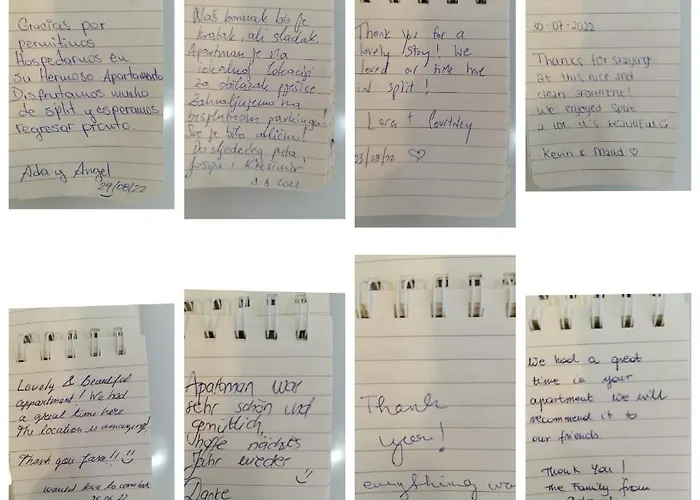 Gracias por
permitirnos
Hospedarnos en
su Hermoso Apartamento
Disfrutamos mucho
de split y esperamos
regresar pronto.
Ada y Angel
29/08/22
Naš boravak bio je
kratak, ali sladak.
Apartman je na
idealnoj lokaciji
za obilazak pješice.
Zahvaljujemo na
besplatnom parkingu!
Sve je bilo odlično!
Do sljedećeg puta,
Josipa i Krešimir
8.8.2022
Thank you for a
lovely stay! We
loved our time here
in split!
Lara + Courtney
23/08/22
30-07-2022
Thanks for staying
at this nice and
clean apartment!
We enjoyed Split
a lot. it's beautiful
Kevin & Maud
Lovely & Beautiful
appartment! We had
a great time here
The location is amazing!
Thank you
would love to come back
Apartman war
sehr schön und
gemütlich,
hoffe nächstes
Jahr wieder
Danke
Thank
you!
everything was
We had a great
time in your
apartment. We will
recommend it to
our friends.
Thank You!
The Family from